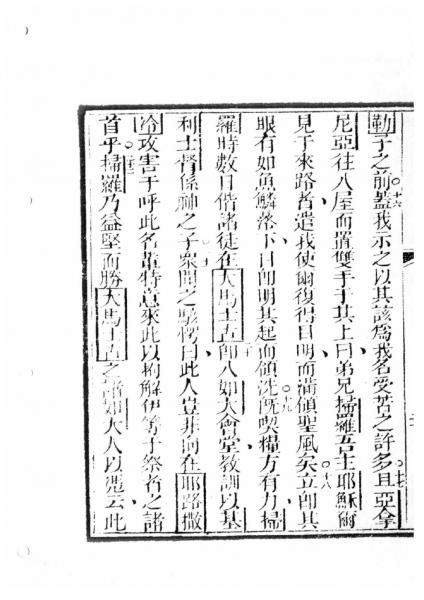 勒子之前蓋我示之以其該爲我名受苦之許多且亞拿
尼亞往入屋而置雙手于其上曰弟兄掃羅吾主耶穌爾
見于來路者遣我使爾復得目明而滿領聖風矣立即其
眼有如魚鱗落下目即明其起而領洗旣喫糧方有力掃
羅時數日偕諸徒在大馬士孟即入如大會堂教訓以基
利士督係神之子衆聞之駭愕曰此人豈非前在耶路撒
冷攻害于呼此名輩特意來此以拘解伊等于祭者之諸
首乎掃羅乃益堅而勝大馬士孟之諸如大人以憑云此